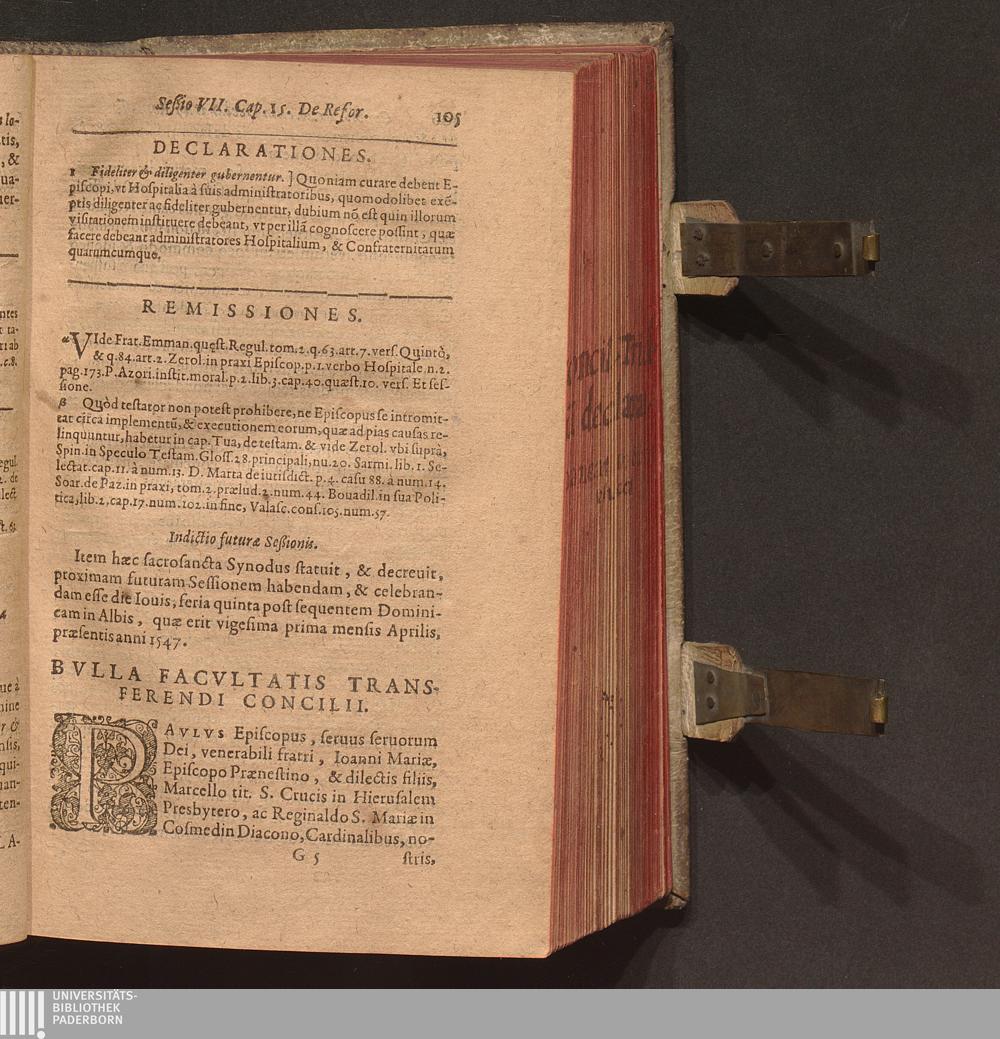 Seſſio VII. Cap. 15. De Refor. 105
DECLARATIONES.
1 Fideliter & diligenter gubernentur. ] Quoniam curare debent E-
piſcopi, vt Hoſpitalia à ſuis adminiſtratoribus, quomodolibet exē-
ptis diligenter ac fideliter gubernentur, dubium nō eſt quin illorum
viſitationem inſtituere debeant, vt per illā cognoſcere poſſint, quæ
facere debeant adminiſtratores Hoſpitalium, & Confraternitatum
quarumcumque.
REMISSIONES.
α VIde Frat. Emman. quęſt. Regul. tom. 2. q. 63. art. 7. verſ. Quintò,
& q. 84. art. 2. Zerol. in praxi Epiſcop. p. 1. verbo Hoſpitale, n. 2.
pag. 173. P. Azori. inſtit. moral. p. 2. lib. 3. cap. 40. quæſt. 10. verſ. Et ſeſ-
ſione.
β Quòd teſtator non poteſt prohibere, ne Epiſcopus ſe intromit-
tat circa implementū, & executionem eorum, quæ ad pias cauſas re-
linquuntur, habetur in cap. Tua, de teſtam. & vide Zerol. vbi ſuprà,
Spin. in Speculo Teſtam. Gloſſ. 28. principali, nu. 20. Sarmi. lib. 1. Se-
lectat. cap. 11. à num. 13. D. Marta de iuriſdict. p. 4. caſu 88. à num. 14.
Soar. de Paz. in praxi, tom. 2. prælud. 2. num. 44. Bouadil. in ſua Poli-
tica, lib. 2. cap. 17. num. 102. in fine, Valaſc. conſ. 105. num. 57.
Indictio futuræ Seſſionis.
Item hæc ſacroſancta Synodus ſtatuit, & decreuit,
proximam futuram Seſſionem habendam, & celebran-
dam eſſe die Iouis, feria quinta poſt ſequentem Domini-
cam in Albis, quæ erit vigeſima prima menſis Aprilis,
præſentis anni 1547.
BVLLA FACVLTATIS TRANS-
FERENDI CONCILII.
PAVLVS Epiſcopus, ſeruus ſeruorum
Dei, venerabili fratri, Ioanni Mariæ,
Epiſcopo Præneſtino, & dilectis filiis,
Marcello tit. S. Crucis in Hieruſalem
Presbytero, ac Reginaldo S. Mariæ in
Coſmedin Diacono, Cardinalibus, no-
G 5 ſtris,
UNIVERSITÄTS-
BIBLIOTHEK
PADERBORN